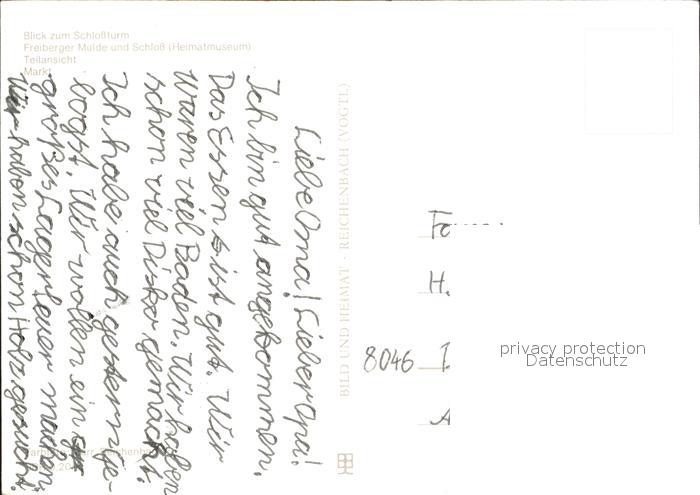 Blick zum Schloßturm
Freiberger Mulde und Schloß (Heimatmuseum)
Teilansicht
Markt
Liebe Oma! Lieber Opa!
Ich bin gut angekommen.
Das Essen ist gut. Wir
waren viel Baden. Wir haben
schon viel Disko gemacht.
Ich habe auch gestern ge-
bogst. Wir wollen ein
großes Lagerfeuer machen.
Wir haben schon Holz gesucht.
BILD UND HEIMAT · REICHENBACH (VOGTL)
Fa
H.
8046 I.
A
privacy protection
Datenschutz